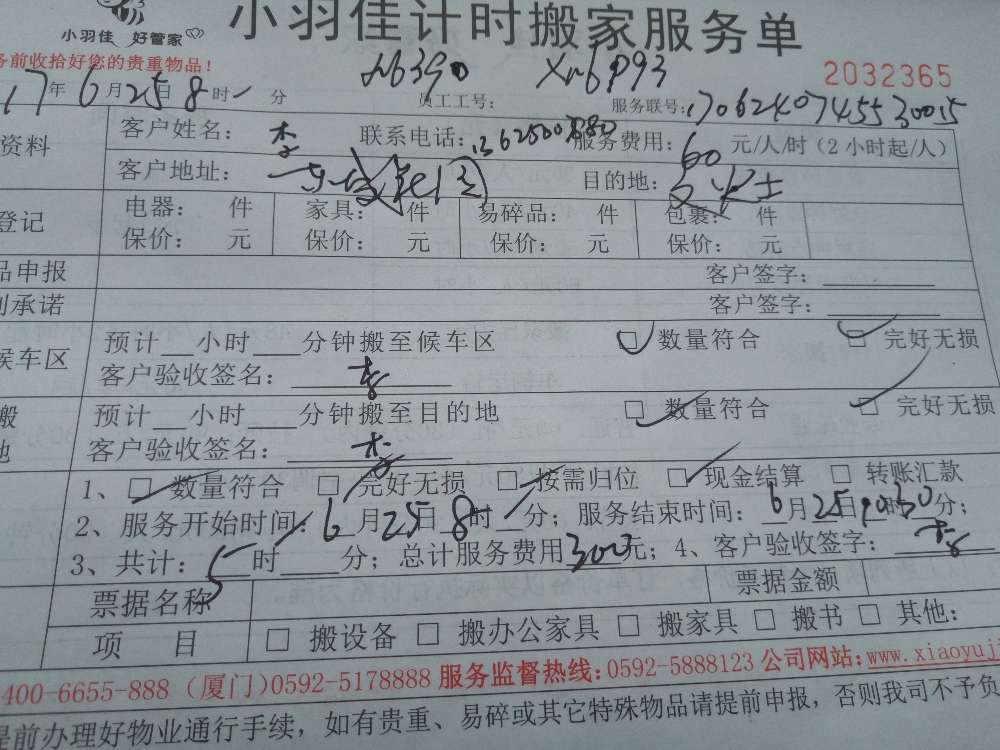 小羽佳 好管家
小羽佳计时搬家服务单
务前收拾好您的贵重物品！
2032365
17年6月25日8时 分 员工工号： 服务联号：
资料 客户姓名：李 联系电话： 服务费用：60元/人/时（2小时起/人）
客户地址： 目的地：
登记 电器： 件 家具： 件 易碎品： 件 包裹： 件
保价： 元 保价： 元 保价： 元 保价： 元
品申报 客户签字：
则承诺 客户签字：
候车区 预计__小时___分钟搬至候车区 □ 数量符合 □ 完好无损
客户验收签名：李
搬 预计__小时___分钟搬至目的地 □ 数量符合 □ 完好无损
地 客户验收签名：李
1、□ 数量符合 □ 完好无损 □ 按需归位 □ 现金结算 □ 转账汇款
2、服务开始时间：6月25日8时 分；服务结束时间：6月25日 时30分；
3、共计：5时 分；总计服务费用300元；4、客户验收签字：李
票据名称 票据金额
项 目 □ 搬设备 □ 搬办公家具 □ 搬家具 □ 搬书 □ 其他：
400-6655-888（厦门）0592-5178888 服务监督热线：0592-5888123 公司网站：www.xiaoyuj
提前办理好物业通行手续，如有贵重、易碎或其它特殊物品请提前申报，否则我司不予负